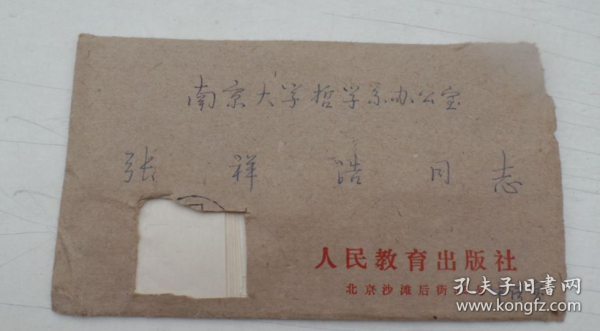 南京大学哲学系办公室
张祥浩同志
人民教育出版社
北京沙滩后街
孔夫子旧书网
www.kongfz.com